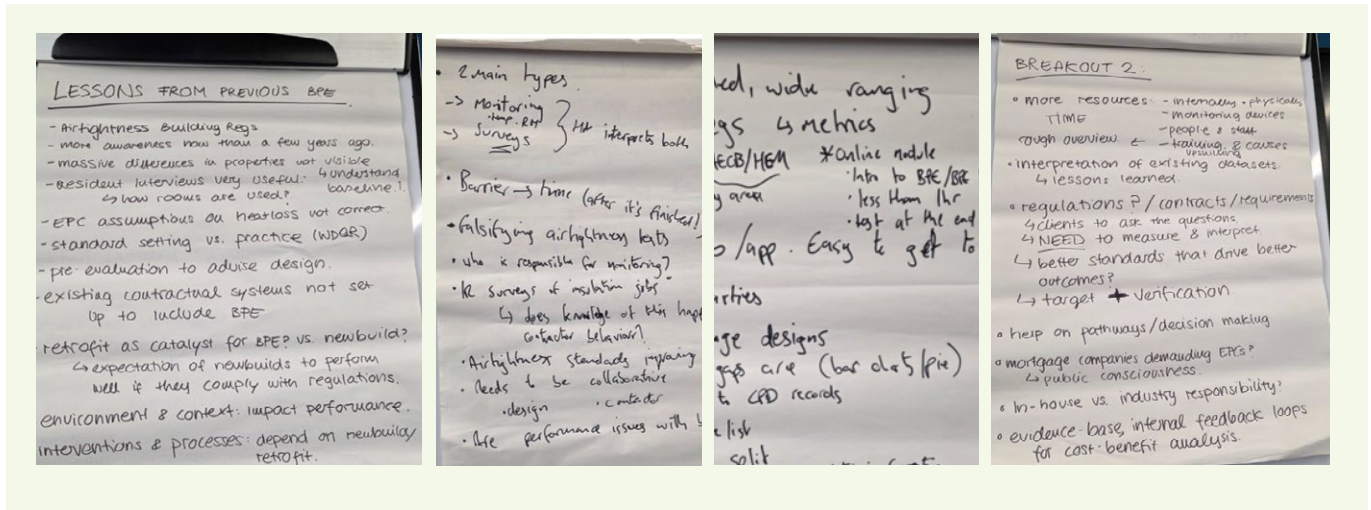 LESSONS FROM PREVIOUS BPE
- Airtightness Building Regs
- more awareness now than a few years ago.
- massive differences in properties not visible
- Resident Interviews very useful. ↳ understand
↳ how rooms are used? baseline!
- EPC assumptions on heatloss not correct.
- standard setting vs. practice (WDQR)
- pre-evaluation to advise design.
- existing contractual systems not set
up to include BPE
retrofit as catalyst for BPE? vs. newbuild?
↳ expectation of newbuilds to perform
well if they comply with regulations.
environment & context: impact performance.
interventions & processes: depend on newbuild/
retrofit.
• 2 main types.
-> Monitoring
• temp. RH
-> Surveys
} HA interprets both
• Barrier -> time (after it's finished!)
• Falsifying airtightness tests
• who is responsible for monitoring?
• surveys of insulation jobs
↳ does knowledge of this
contractor behaviour?
• Airtightness standards improving
• Needs to be collaborative
• design • contractor
• performance issues with
wide ranging
↳ metrics
AECB/HEM *Online module
• Intro to BPE/
area • less than 1hr
• test at the end
/app. Easy to get to
designs
gaps are (bar chart/pie)
CPD records
list
split
BREAKOUT 2:
• more resources: - internally + physically
TIME - monitoring devices
rough overview ← - people & staff
- training & causes
upskilling
• interpretation of existing datasets.
↳ lessons learned.
• regulations?/contracts/requirements
↳ clients to ask the questions
↳ NEED to measure & interpret.
↳ better standards that drive better
outcomes?
↳ target + verification
• help on pathways/decision making
• mortgage companies demanding EPCs?
↳ public consciousness.
• In-house vs. industry responsibility?
• evidence-base, internal feedback loops
for cost-benefit analysis.